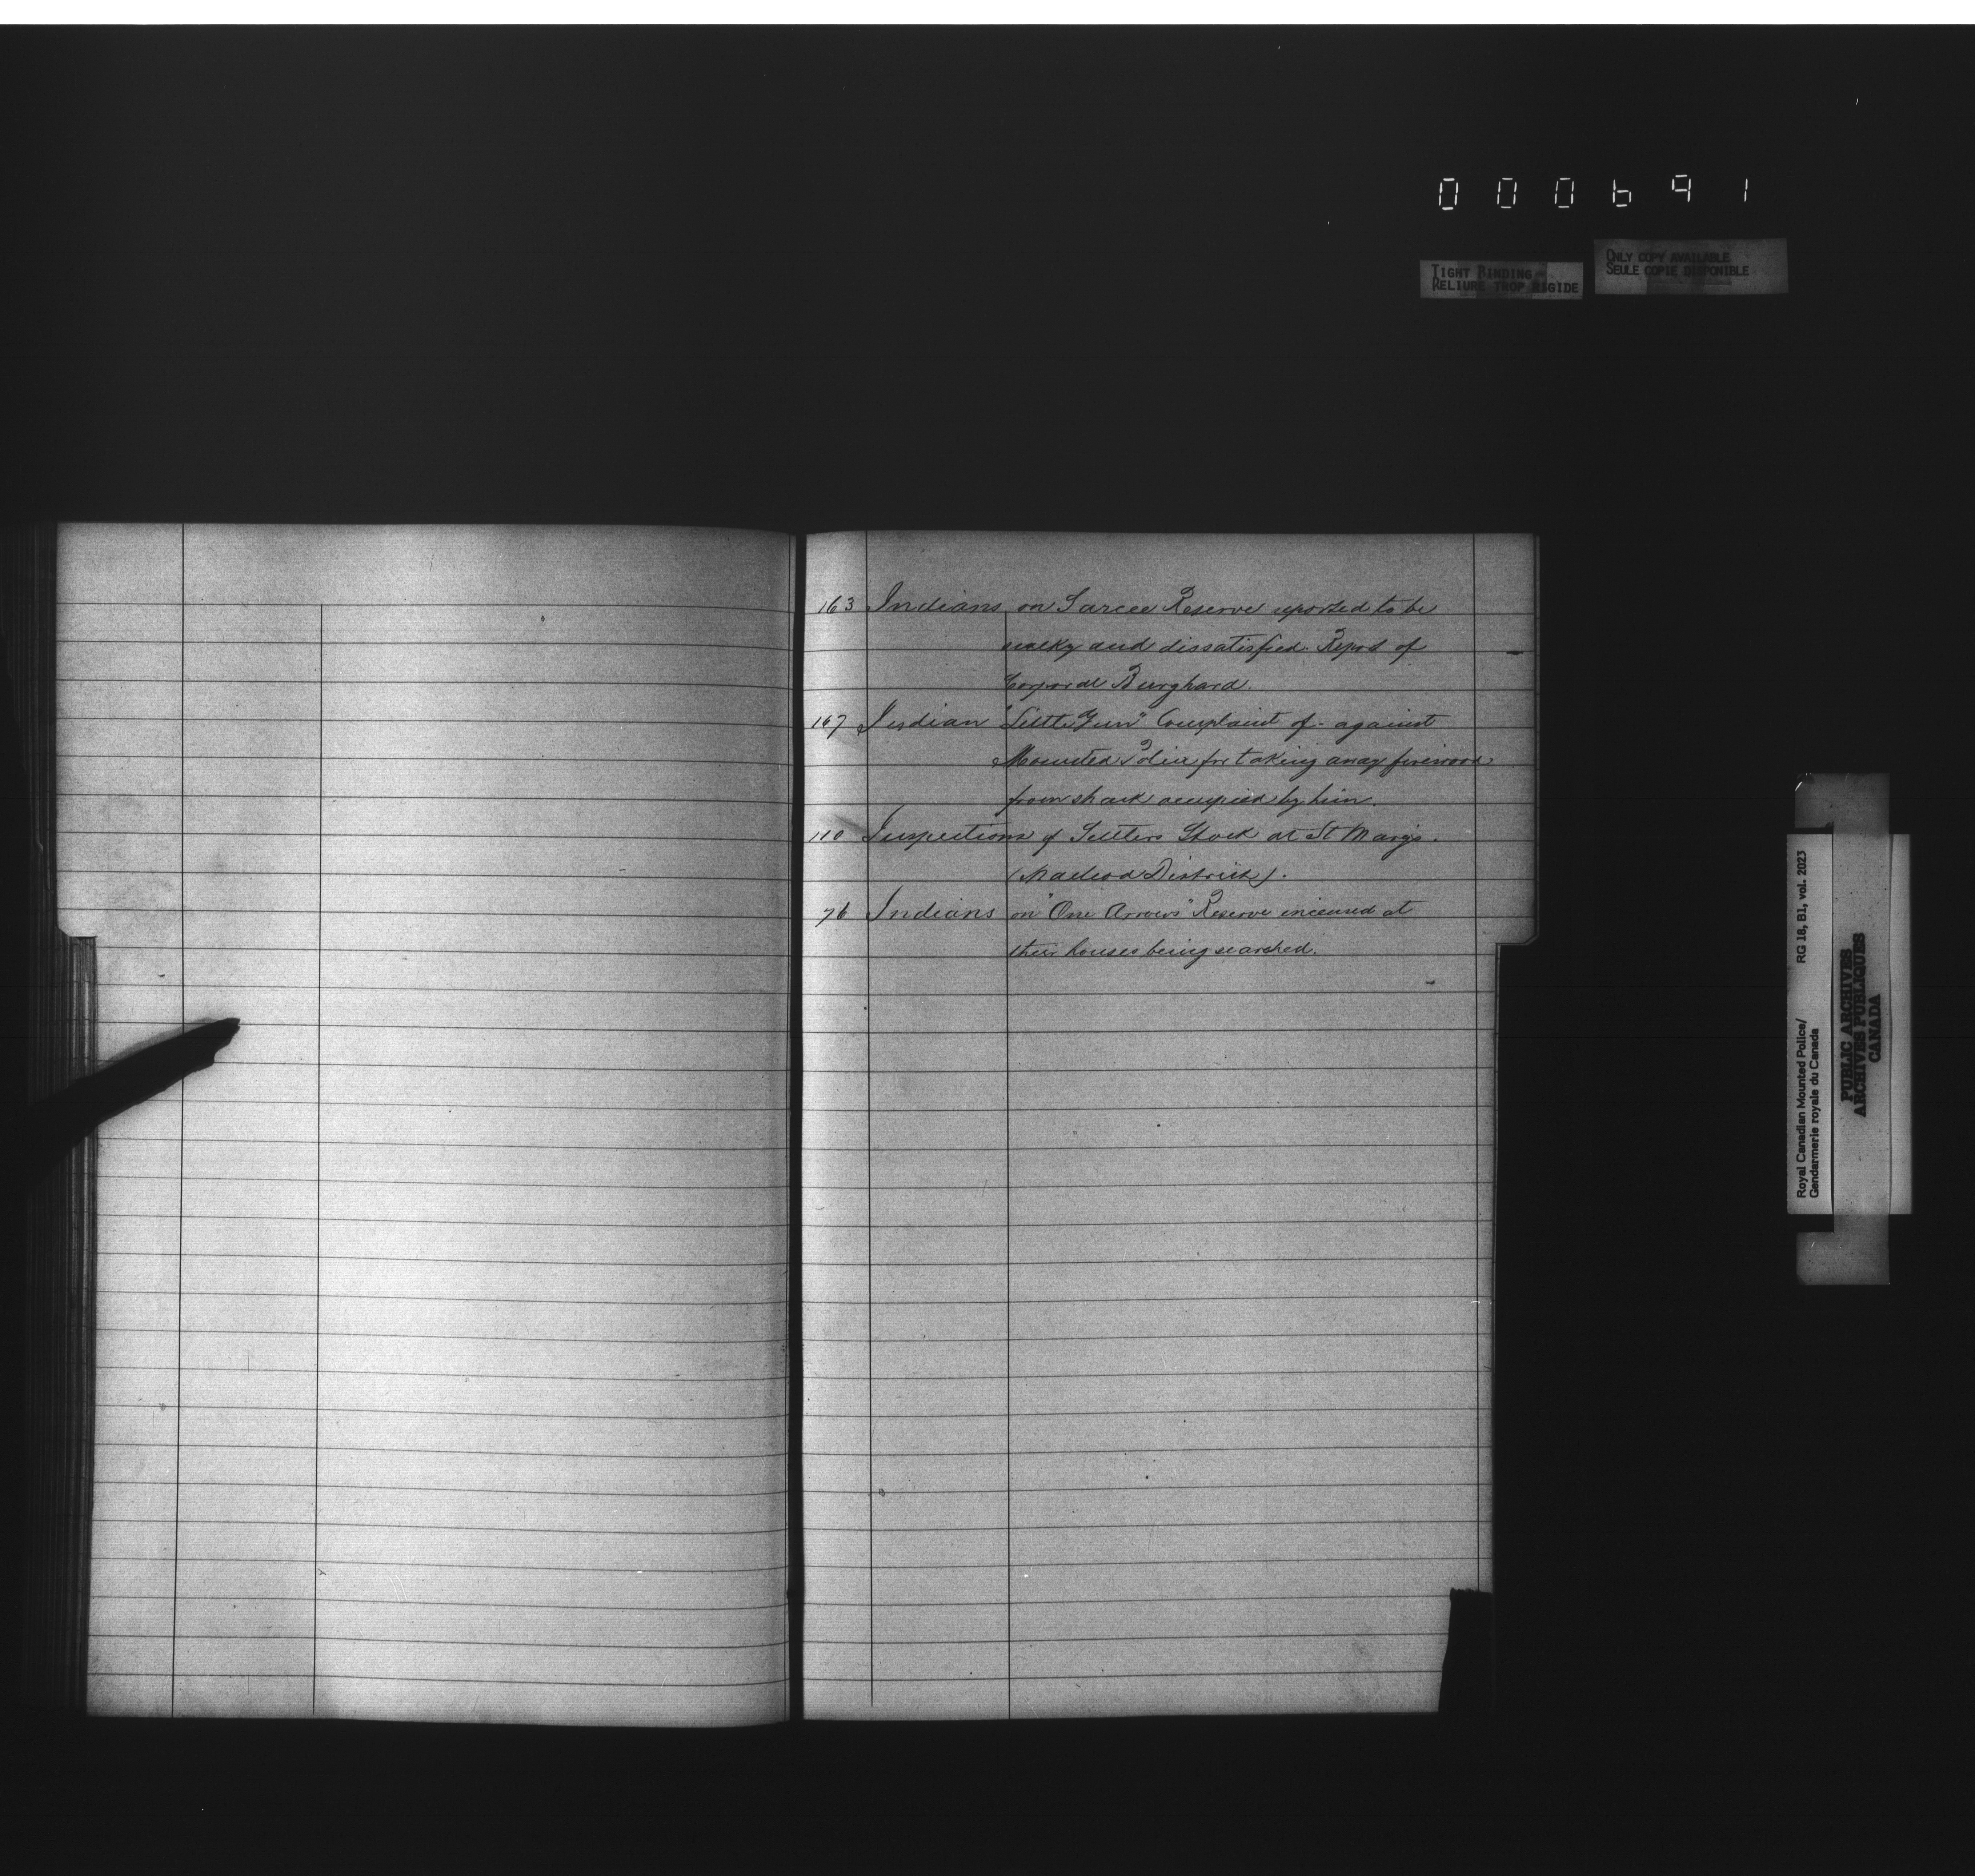 000691
TIGHT BINDING
RELIURE TROP RIGIDE
ONLY COPY AVAILABLE
SEULE COPIE DISPONIBLE
163 Indians on Sarcee Reserve reported to be
sulky and dissatisfied. Report of
Corporal Burghard.
167 Indian "Little Gun" Complaint of - against
Mounted Police for taking away firewood
from shack occupied by him.
110 Inspections of Settlers Stock at St Mary's.
(Macleod District).
76 Indians on "One Arrows" Reserve incensed at
their houses being searched.
Royal Canadian Mounted Police/
Gendarmerie royale du Canada
RG 18, B1, vol. 2023
PUBLIC ARCHIVES
ARCHIVES PUBLIQUES
CANADA